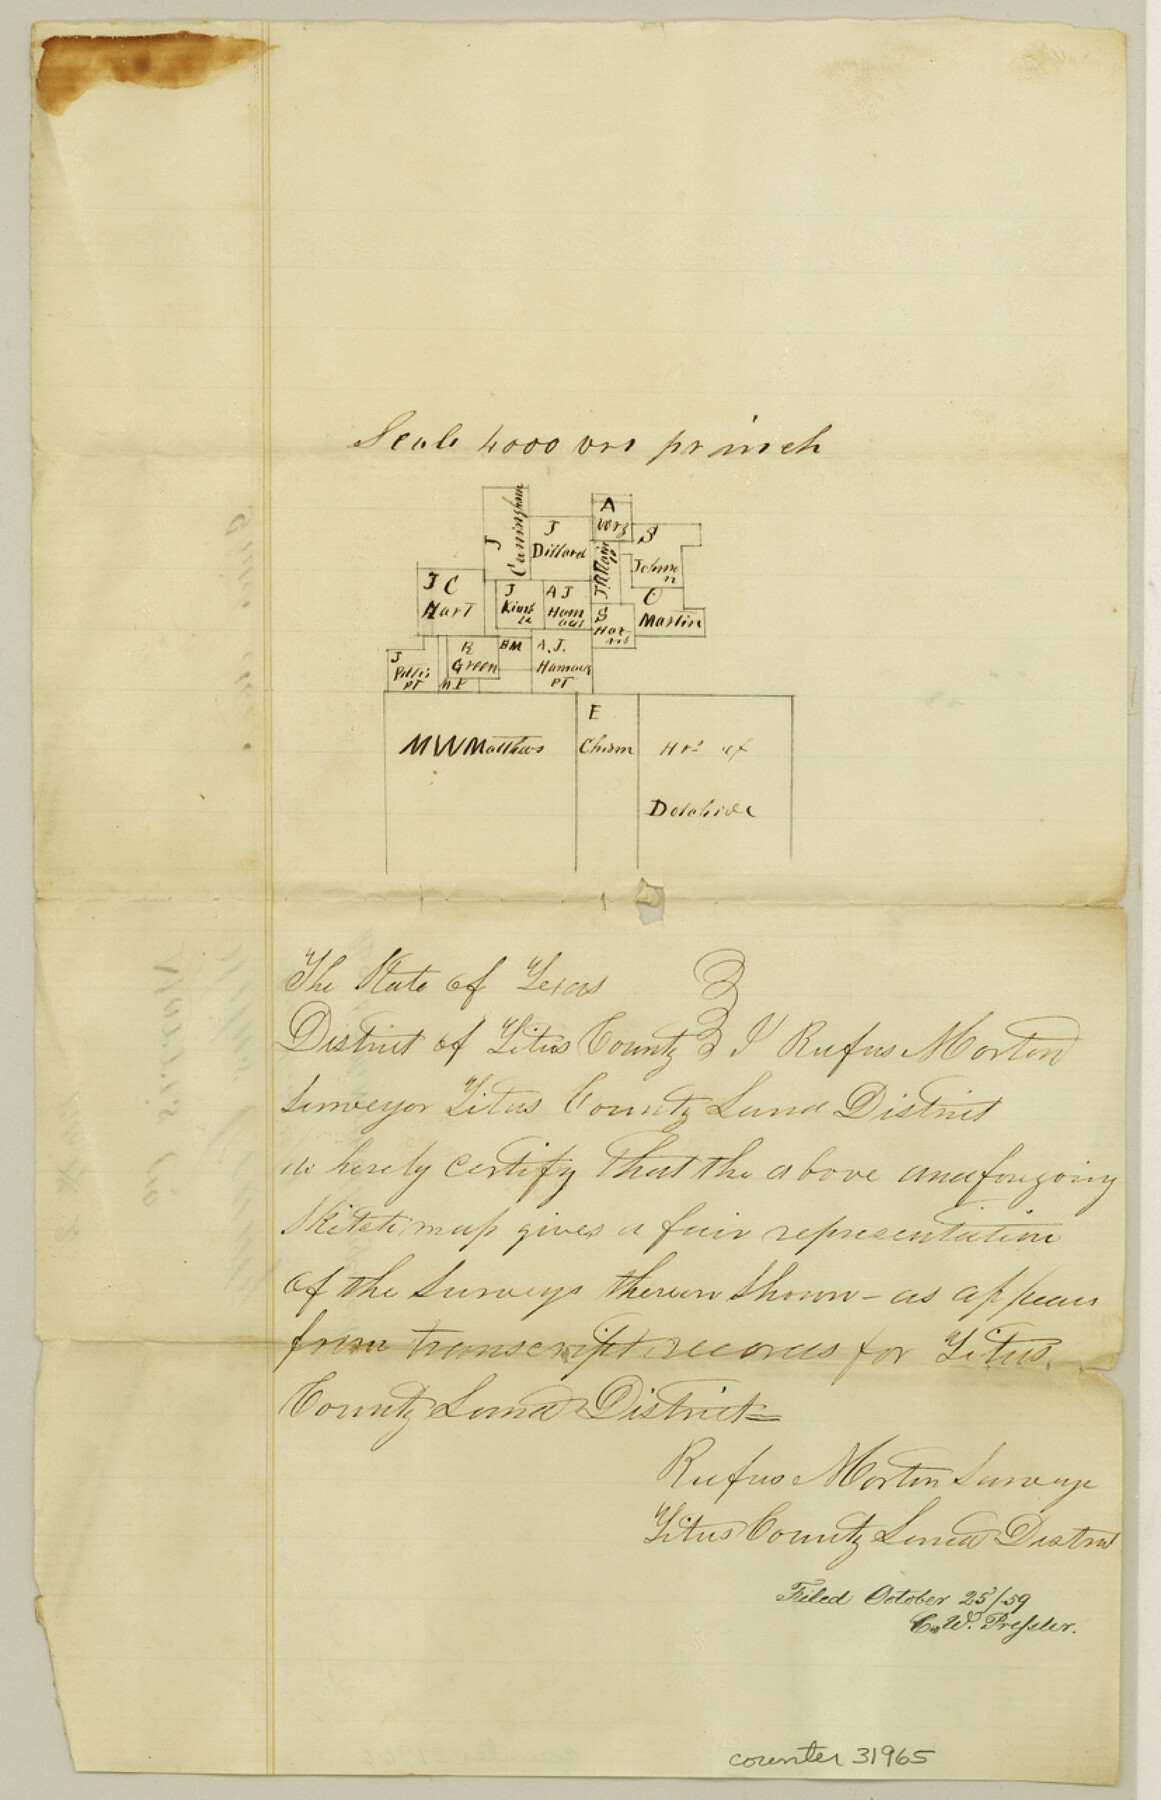 Scale 4000 vrs pr inch
J Cuningham
J Dillard
A Werz
S Johnson
J C Hart
J Kimble
A J Ham
S Harris
O Martin
J Pettis PT
R Green
BM
A. J. Hamack PT
M W Matthews
E Chism
Hrs of
Dolchide
The State of Texas
District of Titus County I Rufus Morton
Surveyor Titus County Land District
do hereby certify that the above and foregoing
Sketch map gives a fair representation
of the Surveys thereon Shown - as appears
from transcript records for Titus
County Land District =
Rufus Morton Surveyor
Titus County Land District
Filed October 25/59
C. W. Pressler.
counter 31965